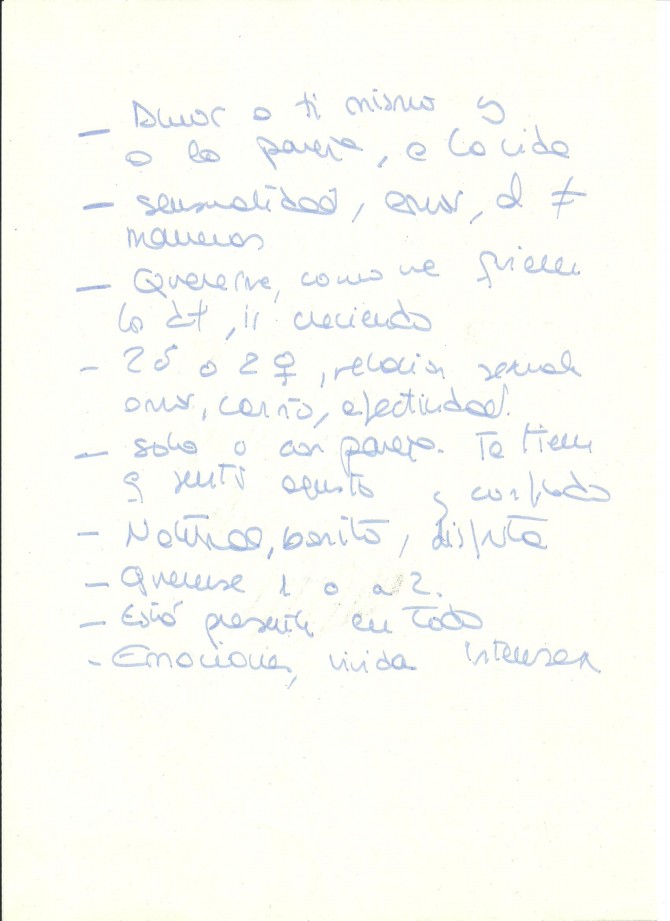 — Amor a ti mismo y
a la pareja, a la vida
— sensualidad, amor, d ≠
maneras
— Quererse, como me quieren
los dt, ir creciendo
- 2 ♂ o 2 ♀, relación sexual
amor, cariño, afectividad.
— solo o con pareja. Te tiene
q sentir agusto y confiado
- Natural, bonito, disfruta
- Quererse 1 o a 2.
- Está presente en Todo
- Emociones, vivida intensa